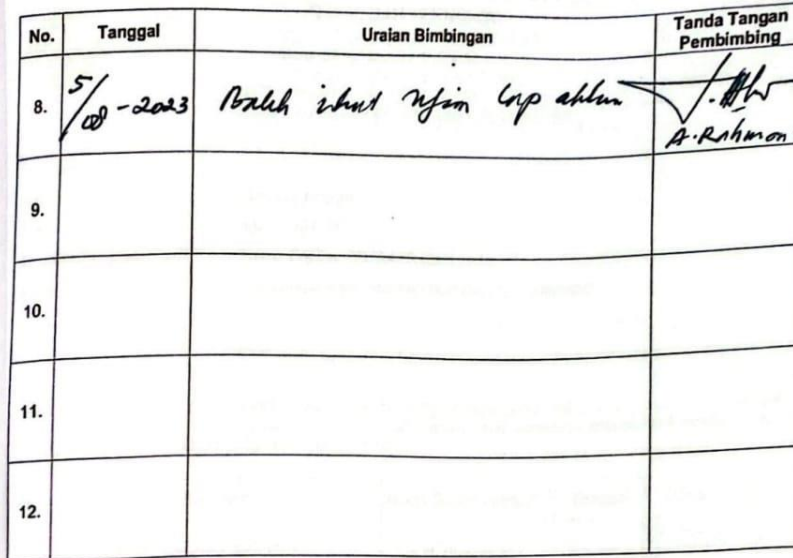 No. Tanggal Uraian Bimbingan Tanda Tangan Pembimbing
8. 5/08-2023 ikut Ujian
A. Rahman
9.
10.
11.
12.